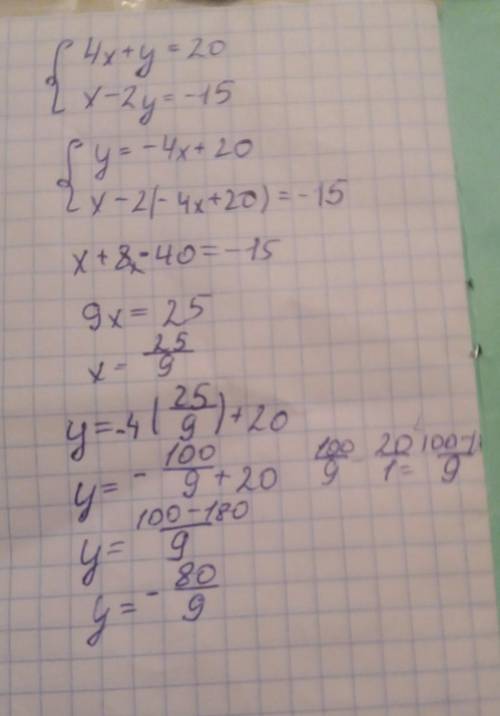 4x+y=20
x-2y=-15
y=-4x+20
x-2(-4x+20)=-15
x+8x-40=-15
9x=25
x=25/9
y=-4(25/9)+20
y=-100/9+20 100/9 - 20/1=
y=100-180/9
y=-80/9